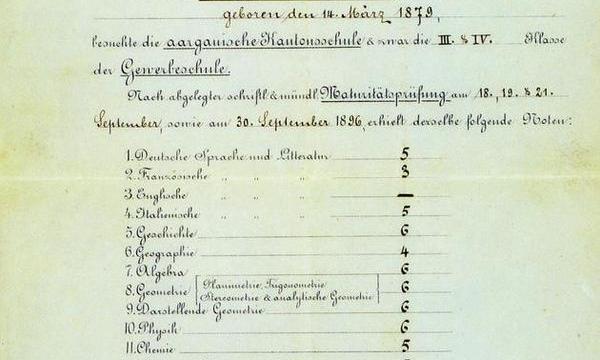 geboren den 14. März 1879,
besuchte die aargauische Kantonsschule & zwar die III. & IV. Klasse
der Gewerbeschule.
Nach abgelegter schriftl. & mündl. Maturitätsprüfung am 18., 19. & 21.
September, sowie am 30. September 1896, erhielt derselbe folgende Noten:
1. Deutsche Sprache und Litteratur 5
2. Französische " " " 3
3. Englische " " " —
4. Italienische " " " 5
5. Geschichte 6
6. Geographie 4
7. Algebra 6
8. Geometrie [Planimetrie, Trigonometrie 6
Stereometrie & analytische Geometrie]
9. Darstellende Geometrie 6
10. Physik 6
11. Chemie 5